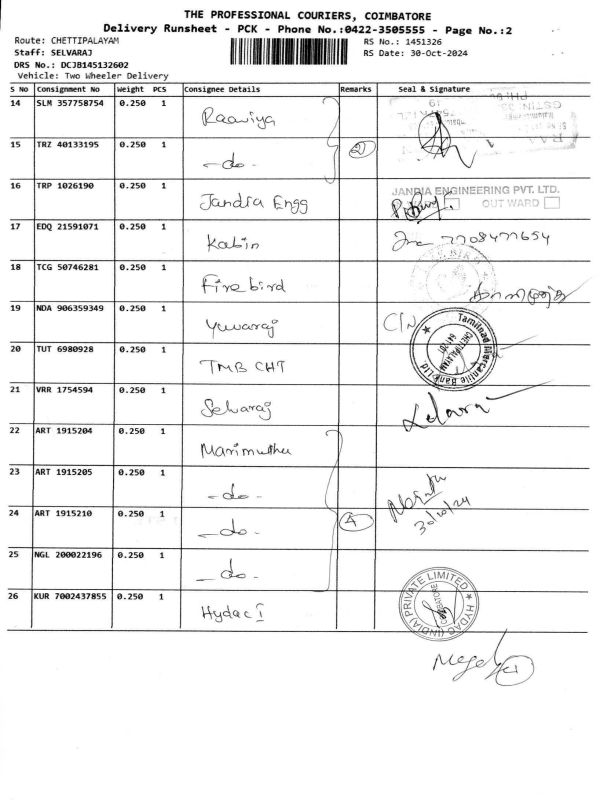 THE PROFESSIONAL COURIERS, COIMBATORE
Delivery Runsheet - PCK - Phone No.:0422-3505555 - Page No.:2
Route: CHETTIPALAYAM
RS No.: 1451326
Staff: SELVARAJ
RS Date: 30-Oct-2024
DRS No.: DCJB145132602
Vehicle: Two Wheeler Delivery
S No Consignment No Weight PCS Consignee Details Remarks Seal & Signature
14 SLM 357758754 0.250 1 Raaviya
15 TRZ 40133195 0.250 1 -do- 2
16 TRP 1026190 0.250 1 Jandra Engg JANDIA ENGINEERING PVT. LTD.
OUT WARD
17 EDQ 21591071 0.250 1 Kabin 7708477654
18 TCG 50746281 0.250 1 Firebird
19 NDA 906359349 0.250 1 Yuvaraj C/N
20 TUT 6980928 0.250 1 TMB CHT Tamilnad Mercantile Bank Ltd. CHETTIPALAYAM
21 VRR 1754594 0.250 1 Selvaraj
22 ART 1915204 0.250 1 Marimuthu
23 ART 1915205 0.250 1 -do-
24 ART 1915210 0.250 1 -do- 4 30/10/24
25 NGL 200022196 0.250 1 -do-
26 KUR 7002437855 0.250 1 Hydac I HYDAC (INDIA) PRIVATE LIMITED COIMBATORE